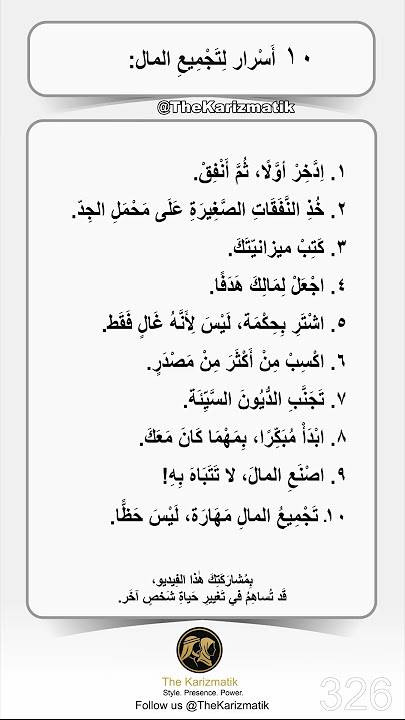 ١٠ أَسْرار لِتَجْمِيعِ المال:
@TheKarizmatik
١. اِدَّخِرْ أوَّلًا، ثُمَّ أَنْفِقْ.
٢. خُذِ النَّفَقَاتِ الصَّغِيرَةِ عَلَى مَحْمَلِ الجِدّ.
٣. كَتِبْ ميزانيّتَكَ.
٤. اجْعَلْ لِمَالِكَ هَدَفًا.
٥. اشْتَرِ بِحِكْمَة، لَيْسَ لِأَنَّهُ غَالٍ فَقَط.
٦. اكْسِبْ مِنْ أَكْثَرَ مِنْ مَصْدَرٍ.
٧. تَجَنَّبِ الدُّيُونَ السَّيِّئَة.
٨. ابْدَأْ مُبَكِّرًا، بِمَهْمَا كَانَ مَعَكَ.
٩. اصْنَعِ المالَ، لا تَتَبَاهَ بِهِ!
١٠. تَجْمِيعُ المالِ مَهَارَة، لَيْسَ حَظًّا.
بِمُشارَكَتِكَ هٰذا الفِيديو،
قَد تُساهِمُ في تَغييرِ حَياةِ شَخصٍ آخَر.
The Karizmatik
Style. Presence. Power.
Follow us @TheKarizmatik
326